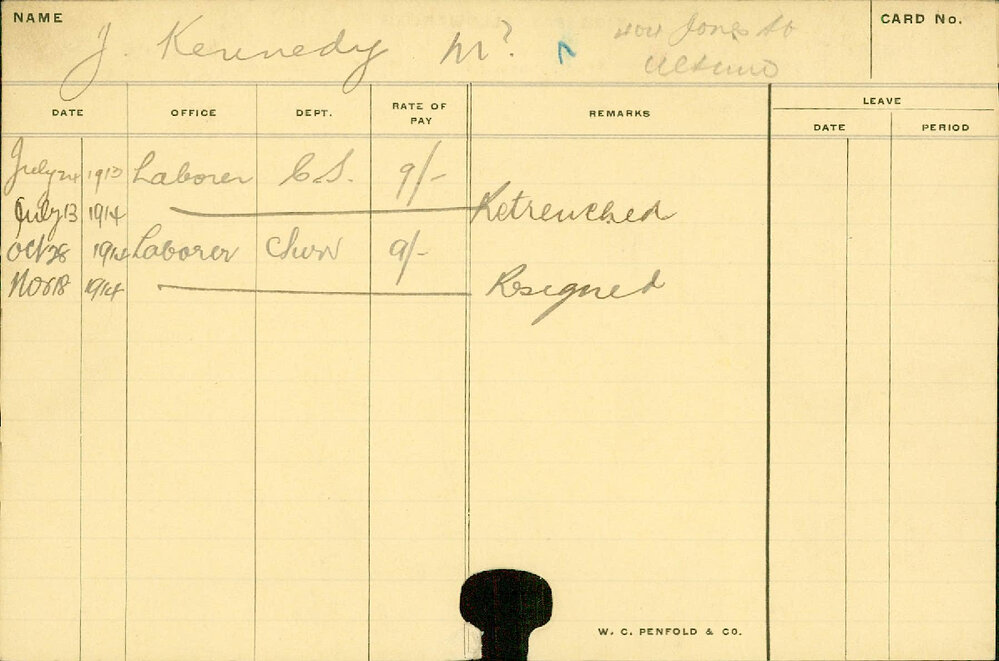 NAME
J. Kennedy M? 404 Jones St
Ultimo
CARD No.
DATE OFFICE DEPT. RATE OF PAY REMARKS LEAVE
DATE PERIOD
July 24 1913 Laborer C.S. 9/-
July 13 1914 Retrenched
Oct 28 1914 Laborer 9/-
Nov 18 1914 Resigned
W. C. PENFOLD & CO.